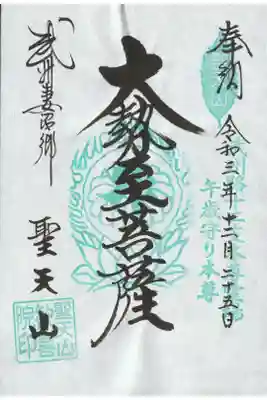 奉納 令和三年十二月二十五日
午歳守り本尊
大勢至菩薩
武州妻沼郷
聖天山